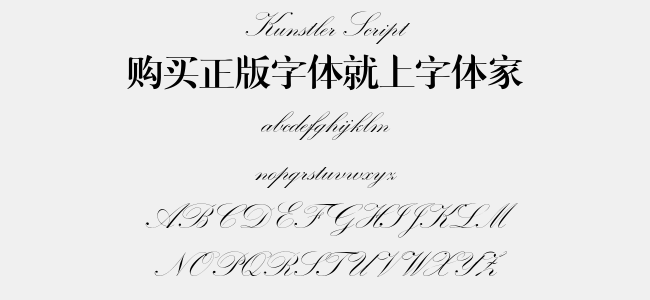 Kunstler Script
购买正版字体就上字体家
abcdefghijklm
nopqrstuvwxyz
ABCDEFGHIJKLM
NOPQRSTUVWXYZ